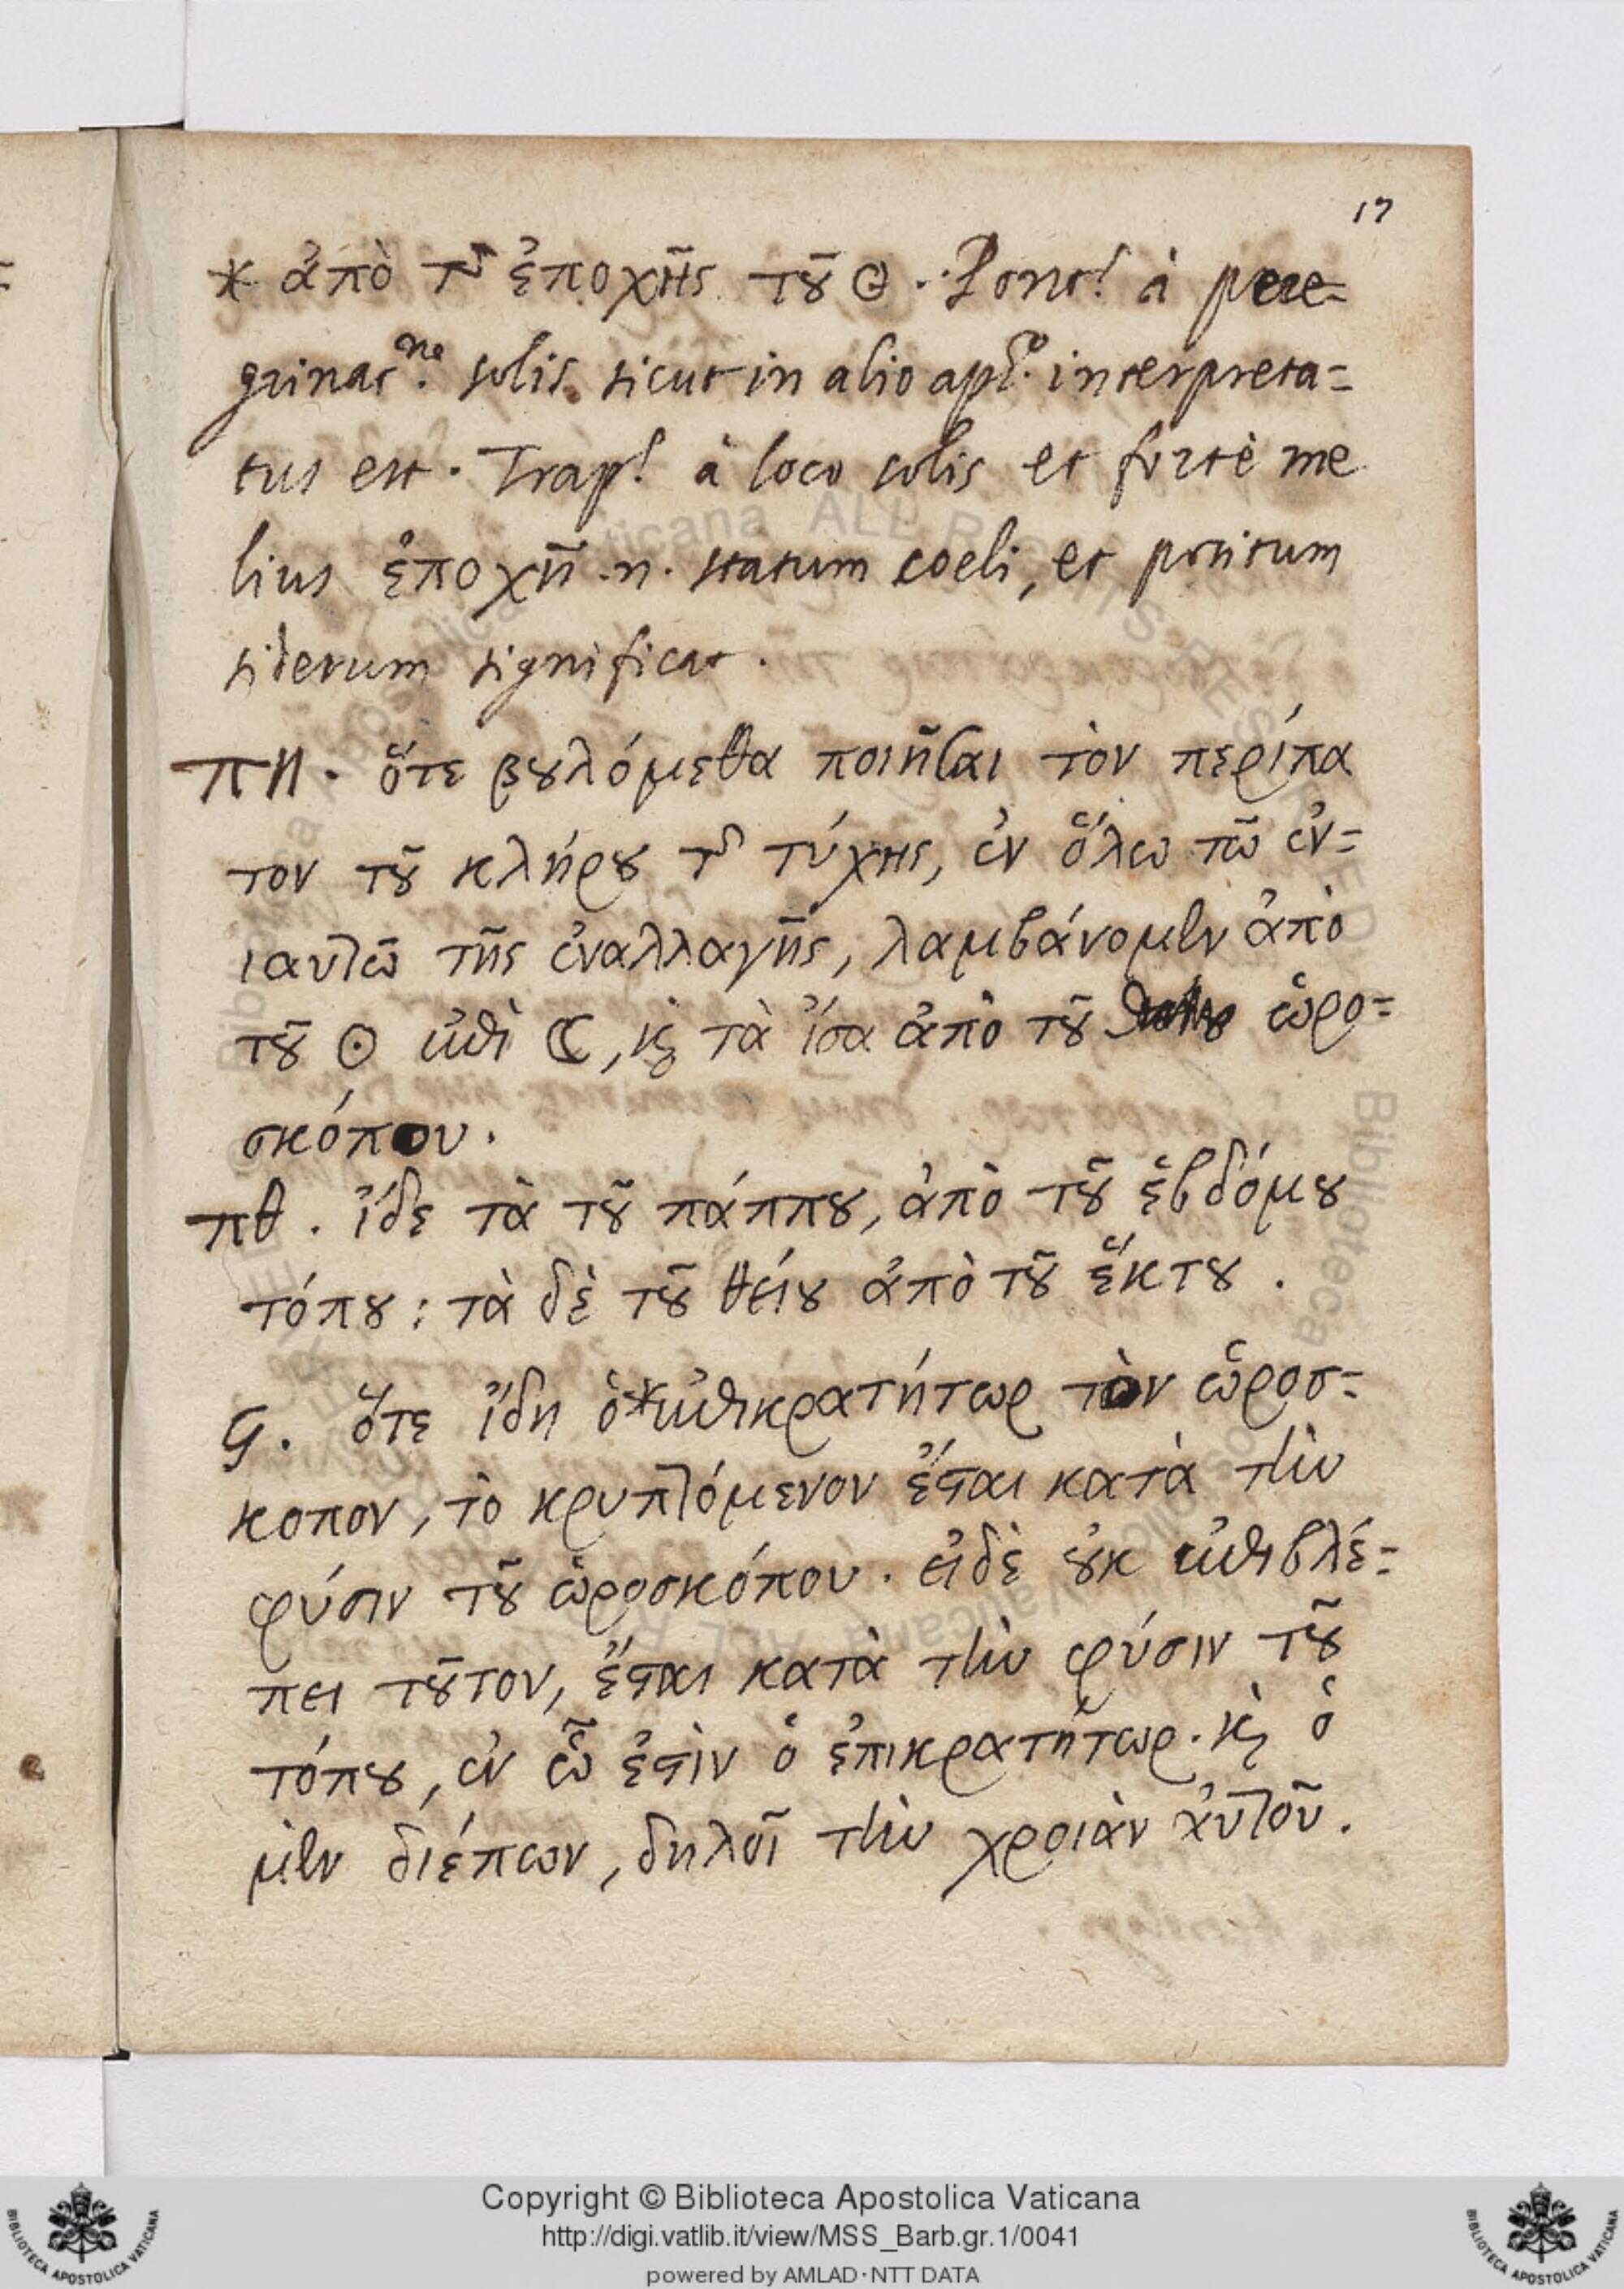 17
* ἀπὸ τῆς ἐποχῆς τοῦ ☉. Pont. à pere=
grinat.ne solis sicut in alio apho. interpreta=
tus est. Trap. à loco solis et fortè me
lius ἐποχὴ .n. statum coeli, et positum
siderum significat.
πη. ὅτε βουλόμεθα ποιῆσαι τὸν περίπα
τον τοῦ κλήρου τῆς τύχης, ἐν ὅλω τῶ ἐν=
ιαυτῶ τῆς ἐναλλαγῆς, λαμβάνομεν ἀπὸ
τοῦ ☉ ἐπὶ ☾, καὶ τὰ ἴσα ἀπὸ τοῦ ὡρο=
σκόπου.
πθ. ἴδε τὰ τοῦ πάππου, ἀπὸ τοῦ ἑβδόμου
τόπου: τὰ δὲ τοῦ θείου ἀπὸ τοῦ ἕκτου.
ϟ. ὅτε ἴδη ὁ *ἐπικρατήτωρ τὸν ὡροσ=
κοπον, τὸ κρυπτόμενον ἔσται κατὰ τὴν
φύσιν τοῦ ὡροσκόπου. εἰδὲ οὐκ ἐπιβλέ=
πει τοῦτον, ἔσται κατὰ τὴν φύσιν τοῦ
τόπου, ἐν ὧ ἐστὶν ὁ ἐπικρατήτωρ. καὶ ὁ
μὲν διέπων, δηλοῖ τὴν χροιὰν αὐτοῦ.
Copyright © Biblioteca Apostolica Vaticana
http://digi.vatlib.it/view/MSS_Barb.gr.1/0041
powered by AMLAD·NTT DATA
BIBLIOTECA APOSTOLICA VATICANA
BIBLIOTECA APOSTOLICA VATICANA